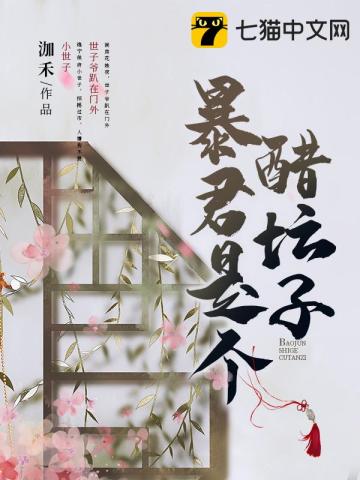 七猫中文网
暴君是个
醋坛子
BAOJUN
SHIGE
CUTANZI
泇禾/作品
小世子
世子爷趴在门外